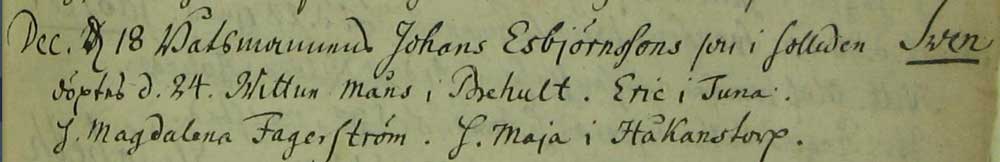 Dec. d 18 Båtsmannens Johans Esbjörnssons son i Solliden Swen
döptes d. 24. Vittne Måns i Brehult. Eric i Tuna.
H. Magdalena Fagerström. H. Maja i Håkanstorp.